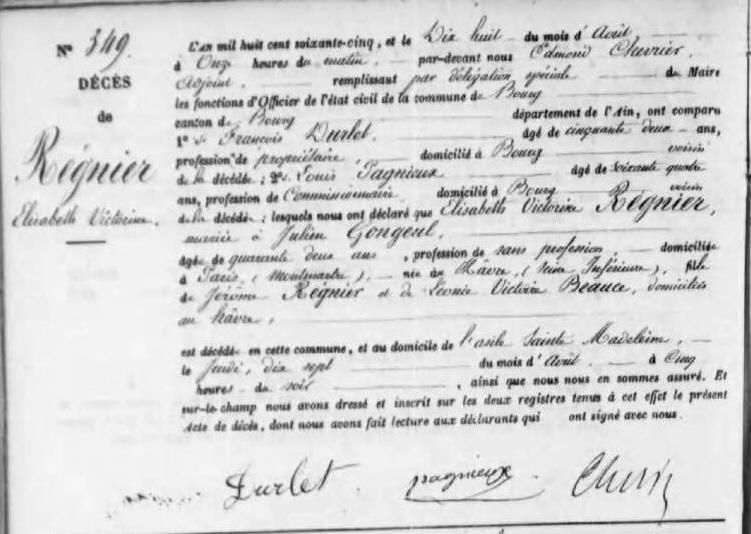 N° 349
DÉCÈS
de
Régnier
Elisabeth Victorine.
L'AN mil huit cent soixante-cinq, et le Dix huit du mois d'Août,
à Onze heures du matin par-devant nous Edmond Chevrier,
Adjoint, remplissant par délégation spéciale de Maire
les fonctions d'Officier de l'état civil de la commune de Bourg
canton de Bourg département de l'Ain, ont comparu
1° Sr François Durlet, âgé de cinquante deux ans,
profession de propriétaire, domicilié à Bourg voisin
de la décédée; 2° Sr Louis Pagnieux âgé de soixante quatre
ans, profession de Commissionnaire domicilié à Bourg voisin
de la décédée; lesquels nous ont déclaré que Elisabeth Victorine Régnier,
mariée à Julien Gongeul,
âgée de quarante deux ans, profession de sans profession, domiciliée
à Paris, (montmartre), née au Hâvre, (Seine Inférieure), fille
de Jérôme Régnier et de Léonie Victoire Beauce, domiciliés
au hâvre,
est décédée en cette commune, et au domicile de l'asile Sainte Madeleine,
le jeudi, dix sept du mois d'Août à Cinq
heures du soir, ainsi que nous nous en sommes assuré. Et
sur-le champ nous avons dressé et inscrit sur les deux registres tenus à cet effet le présent
Acte de décès, dont nous avons fait lecture aux déclarants qui ont signé avec nous.
Durlet pagnieux Chevrier